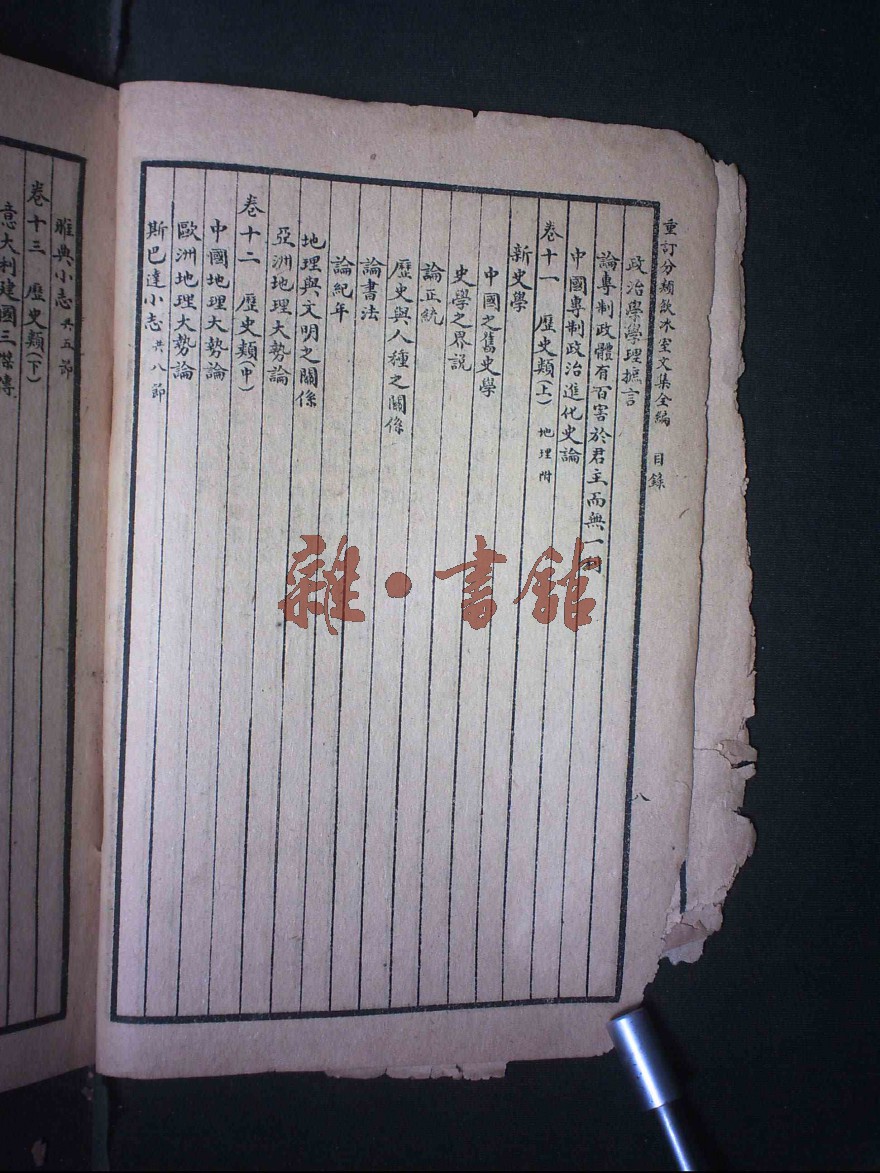 重訂分類飲冰室文集全編　目錄
八
政治學學理摭言
論專制政體有百害於君主而無一利
中國專制政治進化史論
卷十一　歷史類(上)　地理附
新史學
中國之舊史學
史學之界說
論正統
歷史與人種之關係
論書法
論紀年
地理與文明之關係
亞洲地理大勢論
卷十二　歷史類(中)
中國地理大勢論
歐洲地理大勢論
斯巴達小志　共八節
雅典小志　共五節
卷十三　歷史類(下)
意大利建國三傑傳
雜·書館